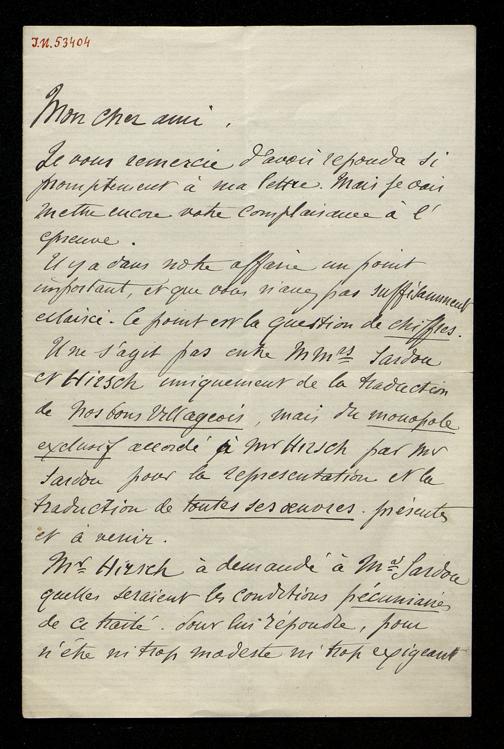 I.N.53404
Mon cher ami,
Je vous remercie d'avoir repondu si
promptement à ma lettre. Mais je vais
mettre encore votre complaisance à l'
épreuve.
Il y a dans notre affaire un point
important, et que vous n'avez pas suffisamment
éclairci. Ce point est la question de chiffres.
Il ne s'agit pas entre Mmrs Sardou
et Hirsch uniquement de la traduction
de Nos bons Villageois, mais du monopole
exclusif accordé à Mr Hirsch par Mr
Sardou pour la representation et la
traduction de toutes ses œuvres présentes
et à venir.
Mr Hirsch à demandé à Mr Sardou
quelles seraient les conditions pécuniaires
de ce traité. Pour lui répondre, pour
n'être ni trop modeste ni trop exigeant